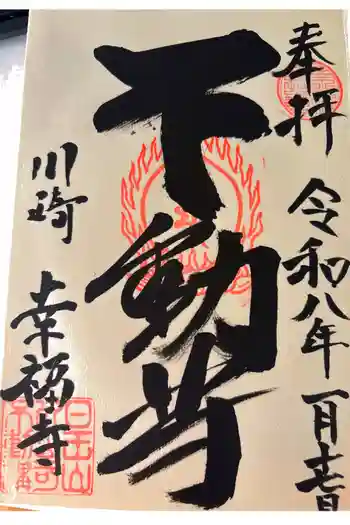 奉拝
令和八年一月 日
不動尊
川崎 幸福寺